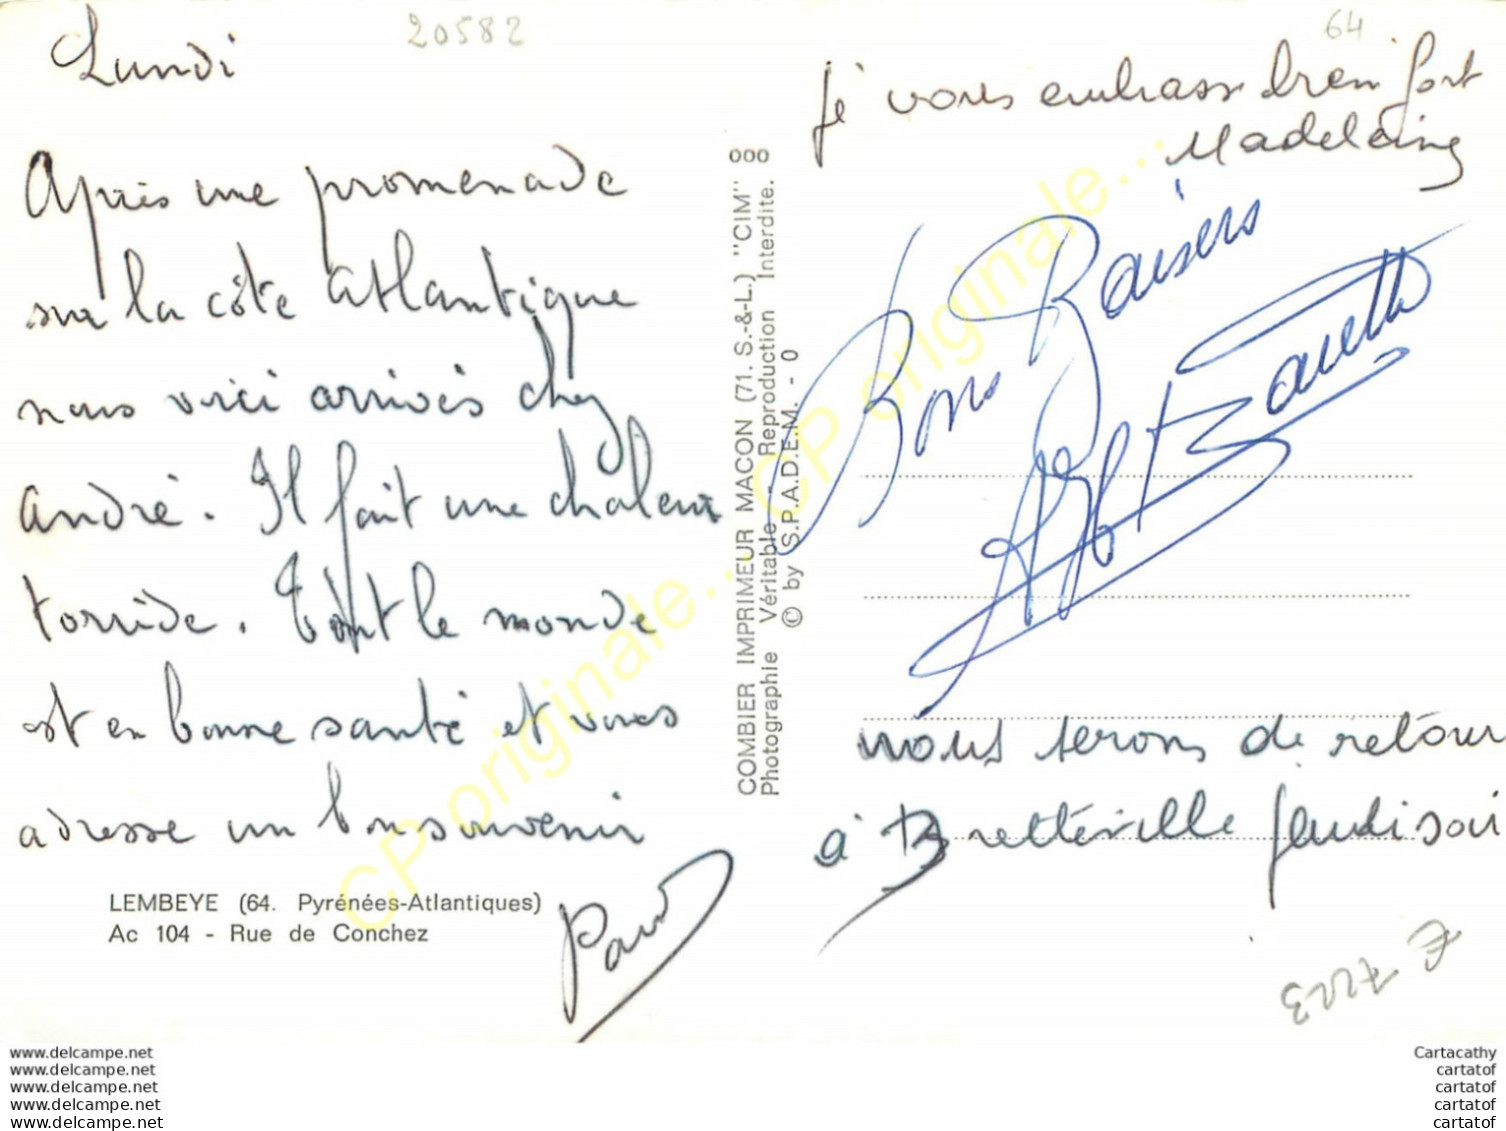 Lundi
20582
64
Après une promenade
sur la côte atlantique
nous voici arrivés chez
André. Il fait une chaleur
torride. Tout le monde
est en bonne santé et vous
adresse un bon souvenir
Paul
LEMBEYE (64. Pyrénées-Atlantiques)
Ac 104 - Rue de Conchez
COMBIER IMPRIMEUR MACON (71. S.-&-L.) "CIM" ooo
Photographie Véritable - Reproduction Interdite.
© by S.P.A.D.E.M. - 0
CP originale... CP originale...
Je vous embrasse bien fort
Madeleine
Bons Baisers
nous serons de retour
à Bretteville Jeudi soir
www.delcampe.net
www.delcampe.net
www.delcampe.net
www.delcampe.net
www.delcampe.net
Cartacathy
cartatof
cartatof
cartatof
cartatof